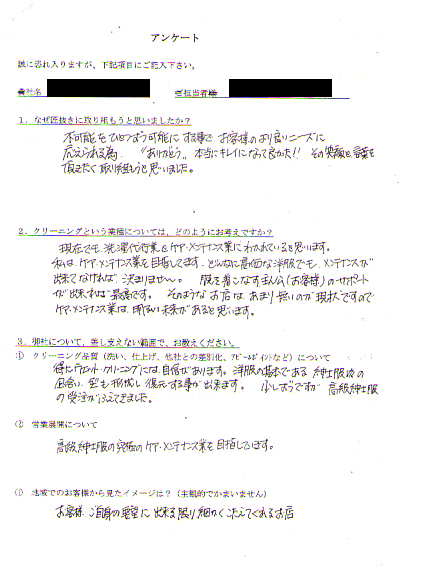 アンケート
誠に恐れ入りますが、下記項目にご記入下さい。
会社名 ご担当者様
1．なぜ匠抜きに取り組もうと思いましたか？
不可能をひとつずつ可能にする事で お客様のより良いニーズに
応えられる為、"ありがとう。本当にキレイになって良かった!! その笑顔と言葉を
頂きたく取り組もうと思いました。
2．クリーニングという業種については、どのようにお考えですか？
現在でも、洗濯代行業とケア・メンテナンス業にわかれていると思います。
私は、ケア・メンテナンス業を目指してます。どんなに高価な洋服でも、メンテナンスが
出来てなければ 決まりません。 服を着こなす主人公(お客様)のサポート
が出来れば最高です。 そのようなお店は、あまり無いのが現状ですので
ケア・メンテナンス業は 明るい未来があると思います。
3．御社について、差し支えない範囲で、お教えください。
① クリーニング品質（洗い、仕上げ、他社との差別化、アピールポイントなど）について
特に 自信があります。洋服の基本である 紳士服
風合い、 も形成し 復元する事が出来ます。 少しずつですが 高級紳士服
の受注がふえてきました。
② 営業展開について
高級紳士服の究極のケア・メンテナンス業を目指してます。
③ 地域でのお客様から見たイメージは？（主観的でかまいません）
お客様、ご自身の要望に 出来る限り細かくこたえてくれるお店